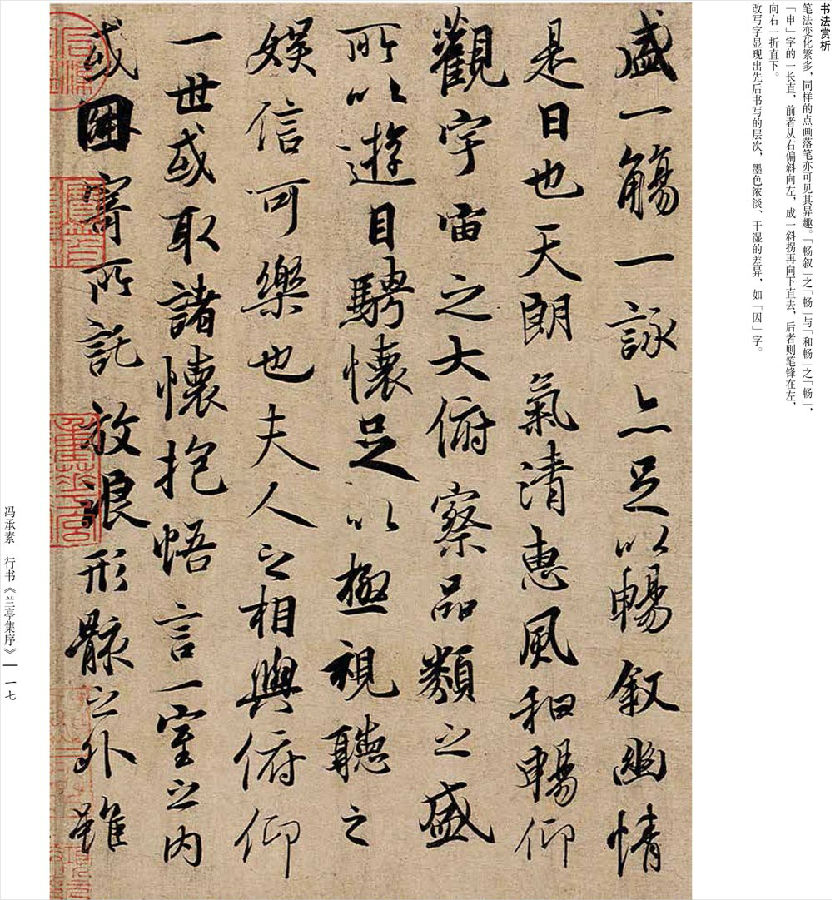 书法赏析
笔法变化繁多，同样的点画落笔亦可见其异趣。「畅叙」之「畅」与「和畅」之「畅」，
「申」字的一长直，前者从右偏斜向左，成一斜拐再向下直去，后者则笔锋在左，
向右一折直下。
改写字显现出先后书写的层次，墨色浓淡、干湿的差异，如「因」字。
盛一觴一詠亦足以暢叙幽情
是日也天朗氣清惠風和暢仰
觀宇宙之大俯察品類之盛
所以遊目騁懷足以極視聽之
娛信可樂也夫人之相與俯仰
一世或取諸懷抱悟言一室之內
或因寄所託放浪形骸之外雖
冯承素 行书《兰亭集序》 一七